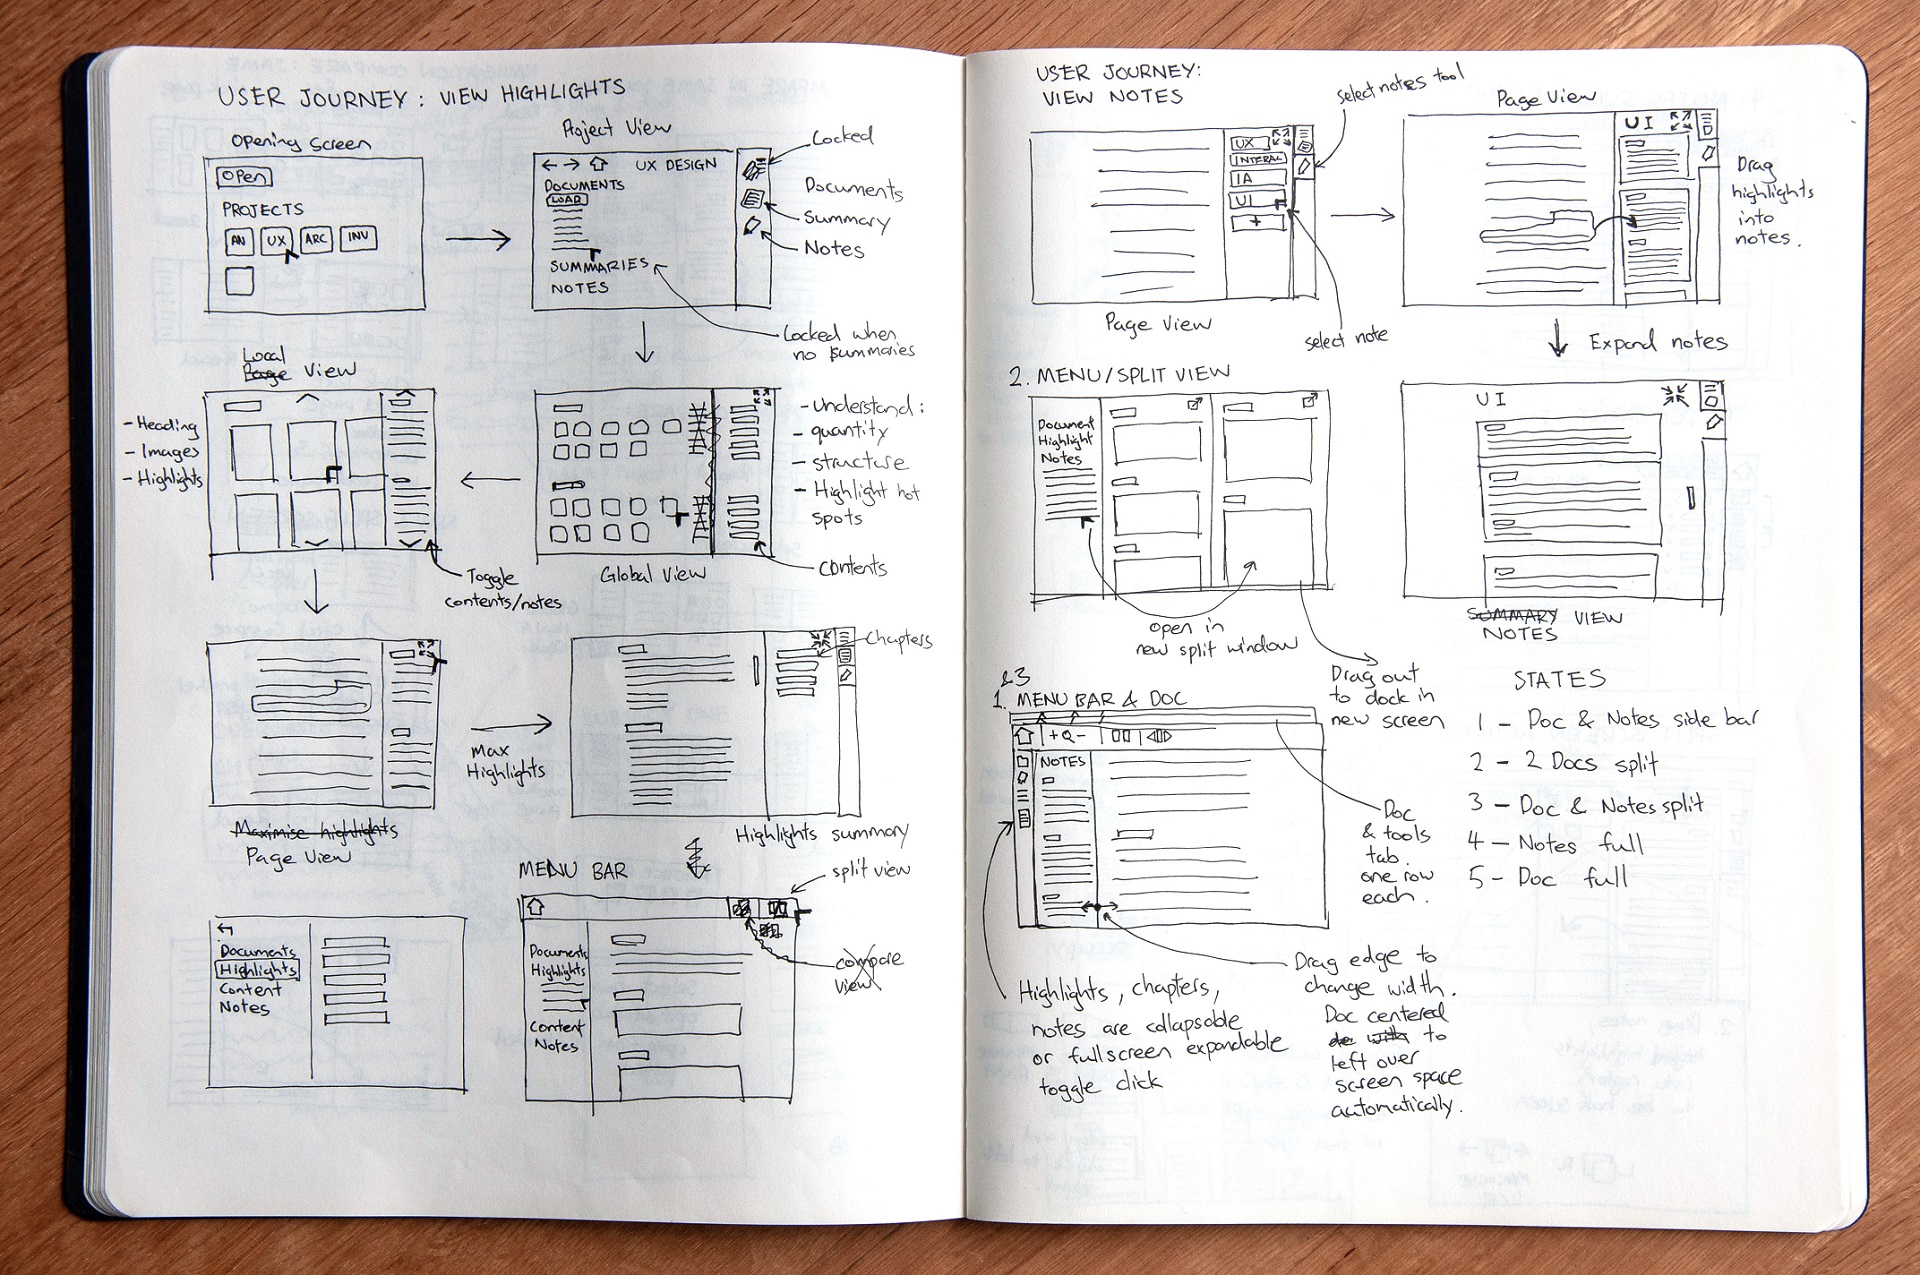 USER JOURNEY : VIEW HIGHLIGHTS
Opening Screen
OPEN
PROJECTS
AN
UX
ARC
INV
Project View
UX DESIGN
DOCUMENTS
LOAD
SUMMARIES
NOTES
Locked
Documents
Summary
Notes
Locked when
no summaries
Local
Page View
- Heading
- Images
- Highlights
Toggle
contents/notes
Global View
- Understand :
- quantity
- structure
- Highlight hot
spots
contents
Maximise highlights
Page View
Max
Highlights
Chapters
Highlights summary
Documents
Highlights
Content
Notes
MENU BAR
split view
compare
view
Documents
Highlights
Content
Notes
USER JOURNEY:
VIEW NOTES
select notes tool
UX
INTERAC
IA
UI
+
Page View
select note
Page View
UI
Drag
highlights
into
notes.
Expand notes
2. MENU/SPLIT VIEW
Document
Highlight
Notes
open in
new split window
Drag out
to dock in
new screen
UI
SUMMARY VIEW
NOTES
&3
1. MENU BAR & DOC
+Q-
NOTES
Doc
& tools
tab.
one row
each.
Highlights, chapters,
notes are collapsable
or fullscreen expandable
toggle click
Drag edge to
change width.
Doc centered
to
left over
screen space
automatically.
STATES
1 - Doc & Notes side bar
2 - 2 Docs split
3 - Doc & Notes split
4 - Notes full
5 - Doc full